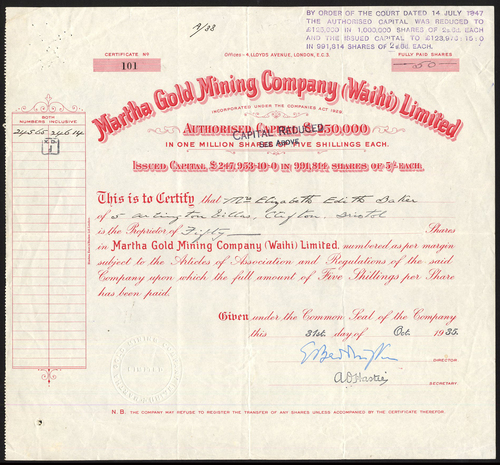 9/38
BY ORDER OF THE COURT DATED 14 JULY 1947
THE AUTHORISED CAPITAL WAS REDUCED TO
£125,000 IN 1,000,000 SHARES OF 2s.6d. EACH
AND THE ISSUED CAPITAL TO £123,976:15:0
IN 991,814 SHARES OF 2s.6d. EACH.
CERTIFICATE Nº
101
Offices - 4, LLOYDS AVENUE, LONDON, E.C.3.
FULLY PAID SHARES
50
Martha Gold Mining Company (Waihi) Limited
INCORPORATED UNDER THE COMPANIES ACT 1929
AUTHORISED CAPITAL £250,000
CAPITAL REDUCED
SEE ABOVE
IN ONE MILLION SHARES OF FIVE SHILLINGS EACH.
ISSUED CAPITAL, £247,953-10-0 IN 991,814 SHARES OF 5/- EACH.
BOTH
NUMBERS INCLUSIVE
This is to Certify that Mrs Elizabeth Edith Baker
of 5 Arlington Villas, Clifton, Bristol
is the Proprietor of Fifty Shares
in Martha Gold Mining Company (Waihi) Limited, numbered as per margin
subject to the Articles of Association and Regulations of the said
Company upon which the full amount of Five Shillings per Share
has been paid.
Given under the Common Seal of the Company
this 31st. day of Oct. 1935.
DIRECTOR
A D Hastie
SECRETARY
N.B. THE COMPANY MAY REFUSE TO REGISTER THE TRANSFER OF ANY SHARES UNLESS ACCOMPANIED BY THE CERTIFICATE THEREFOR.